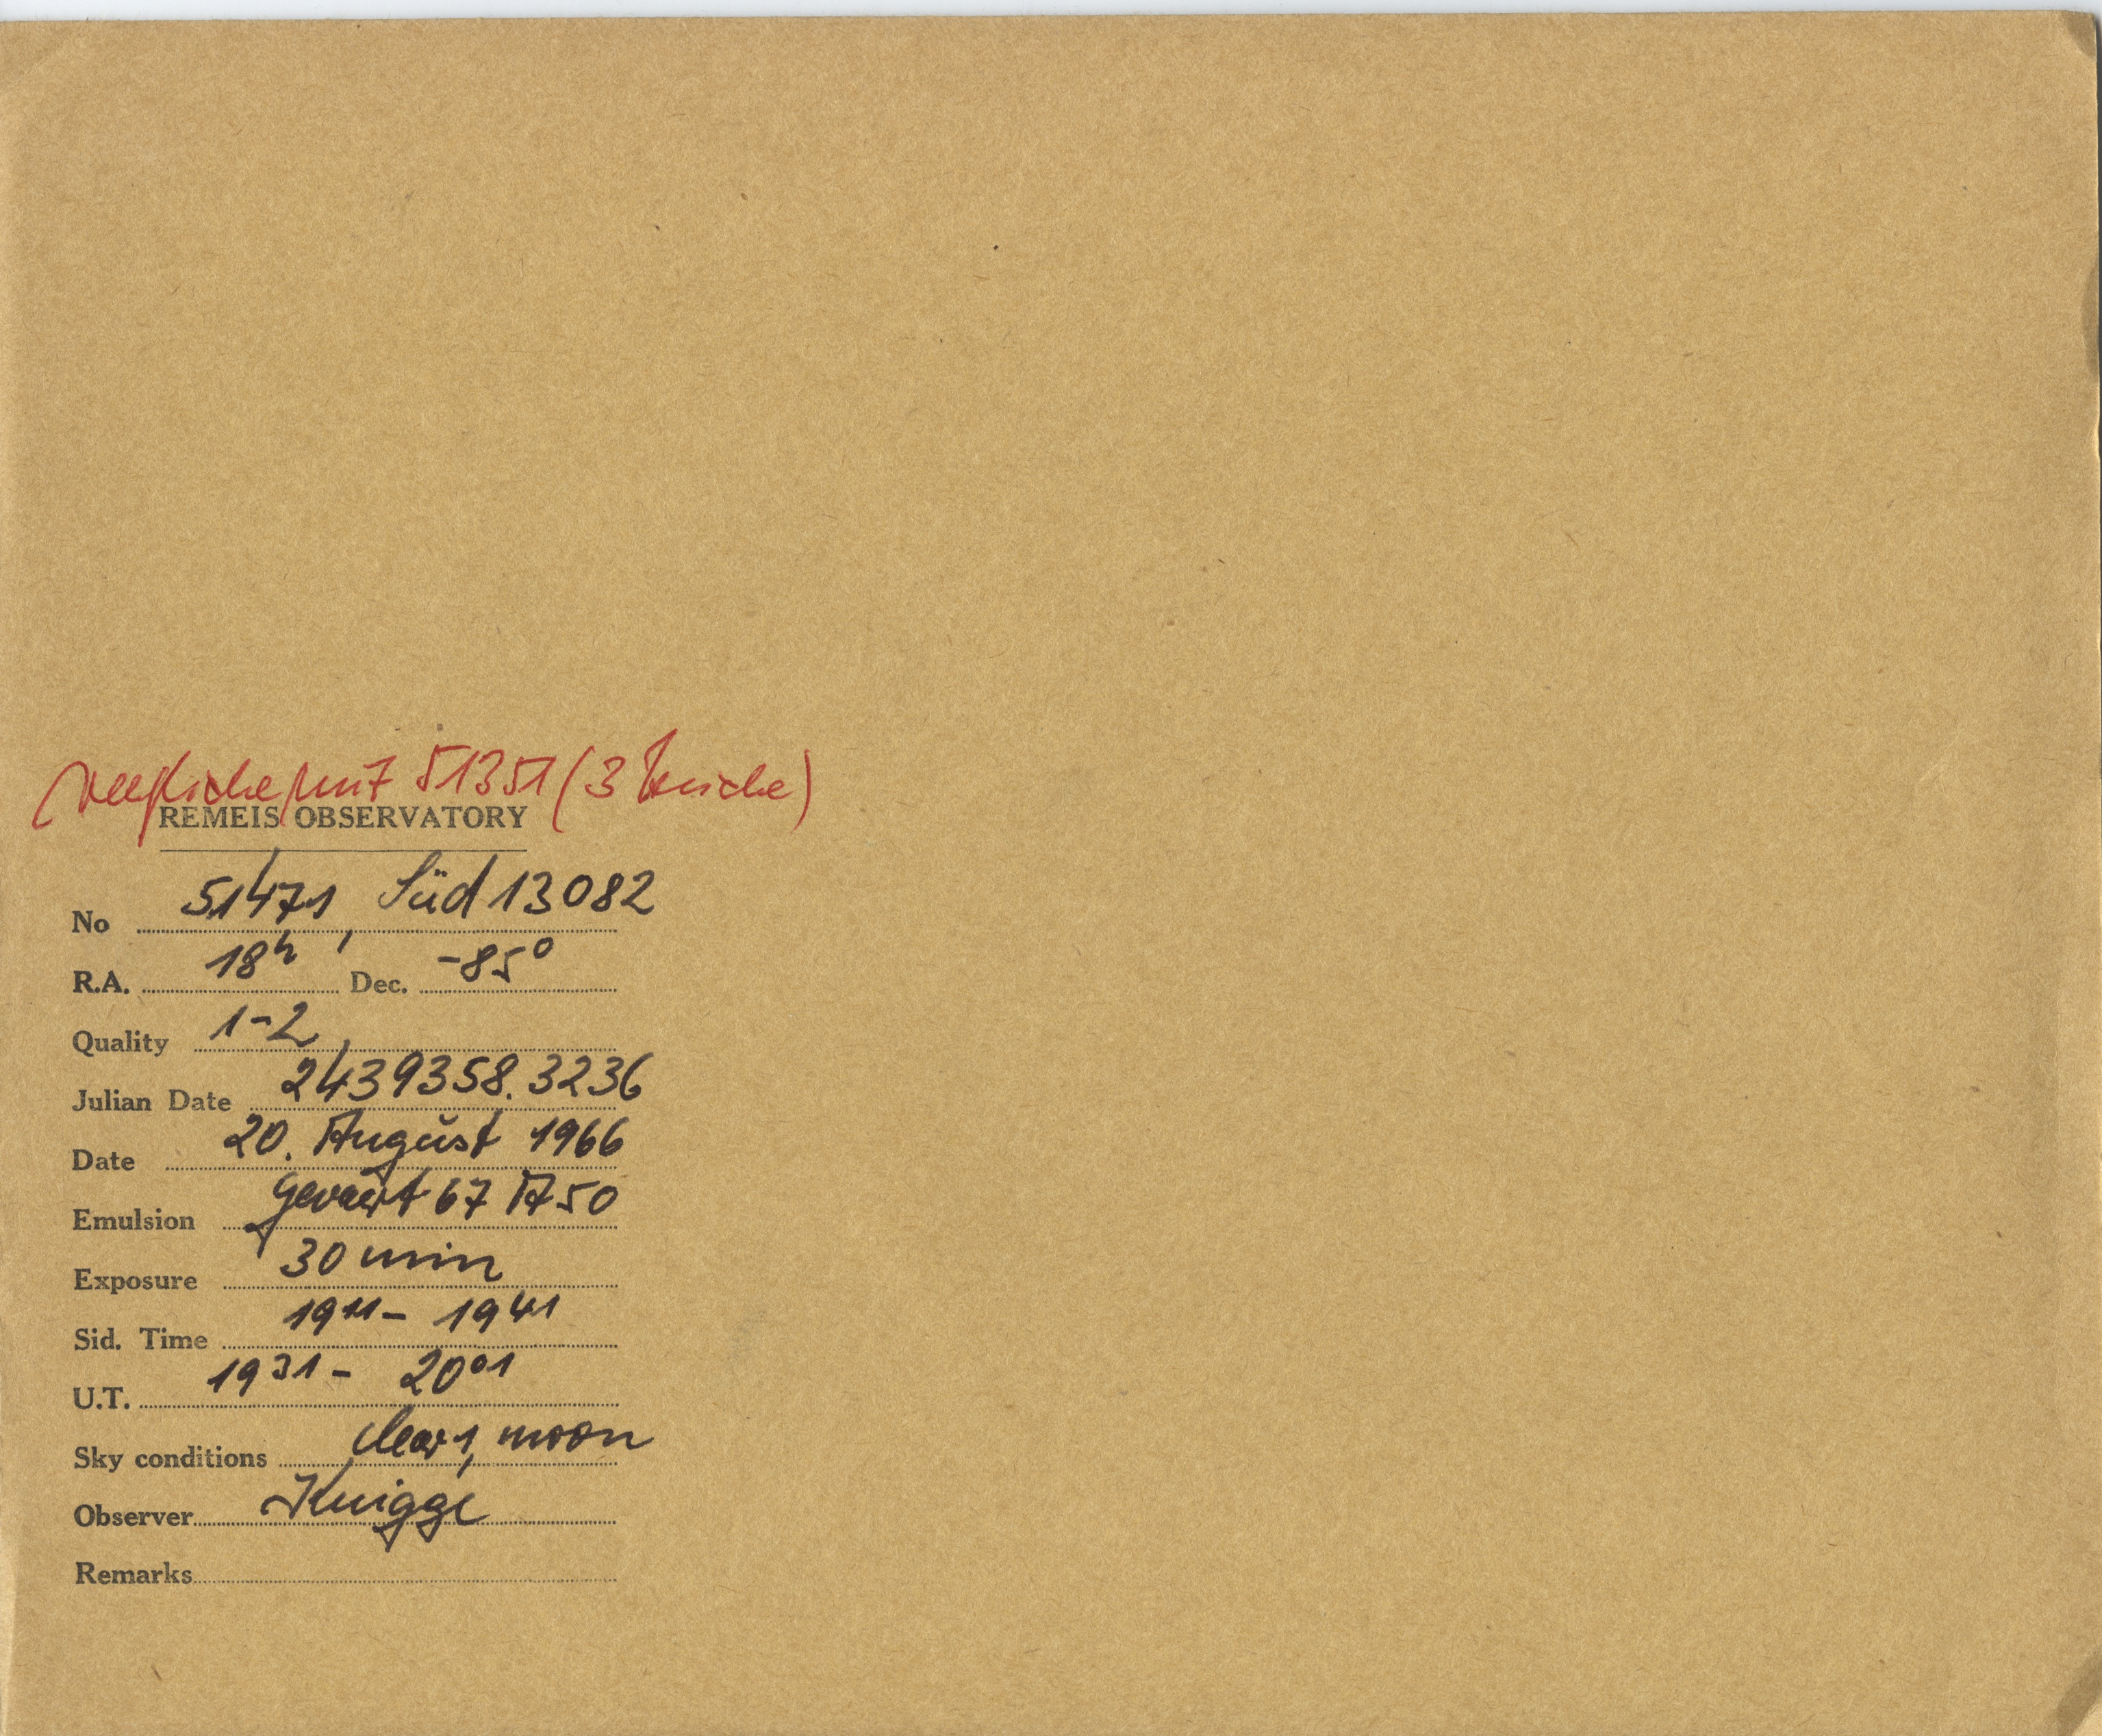 mit 51351 (3
REMEIS OBSERVATORY
No 51471, Süd 13082
R.A. 18h Dec. -85°
Quality 1-2
Julian Date 2439358.3236
Date 20. August 1966
Emulsion Gevaert 67 A 50
Exposure 30 min
Sid. Time 19 11 - 19 41
U.T. 19 31 - 20 01
Sky conditions clear 1, moon
Observer Knigge
Remarks